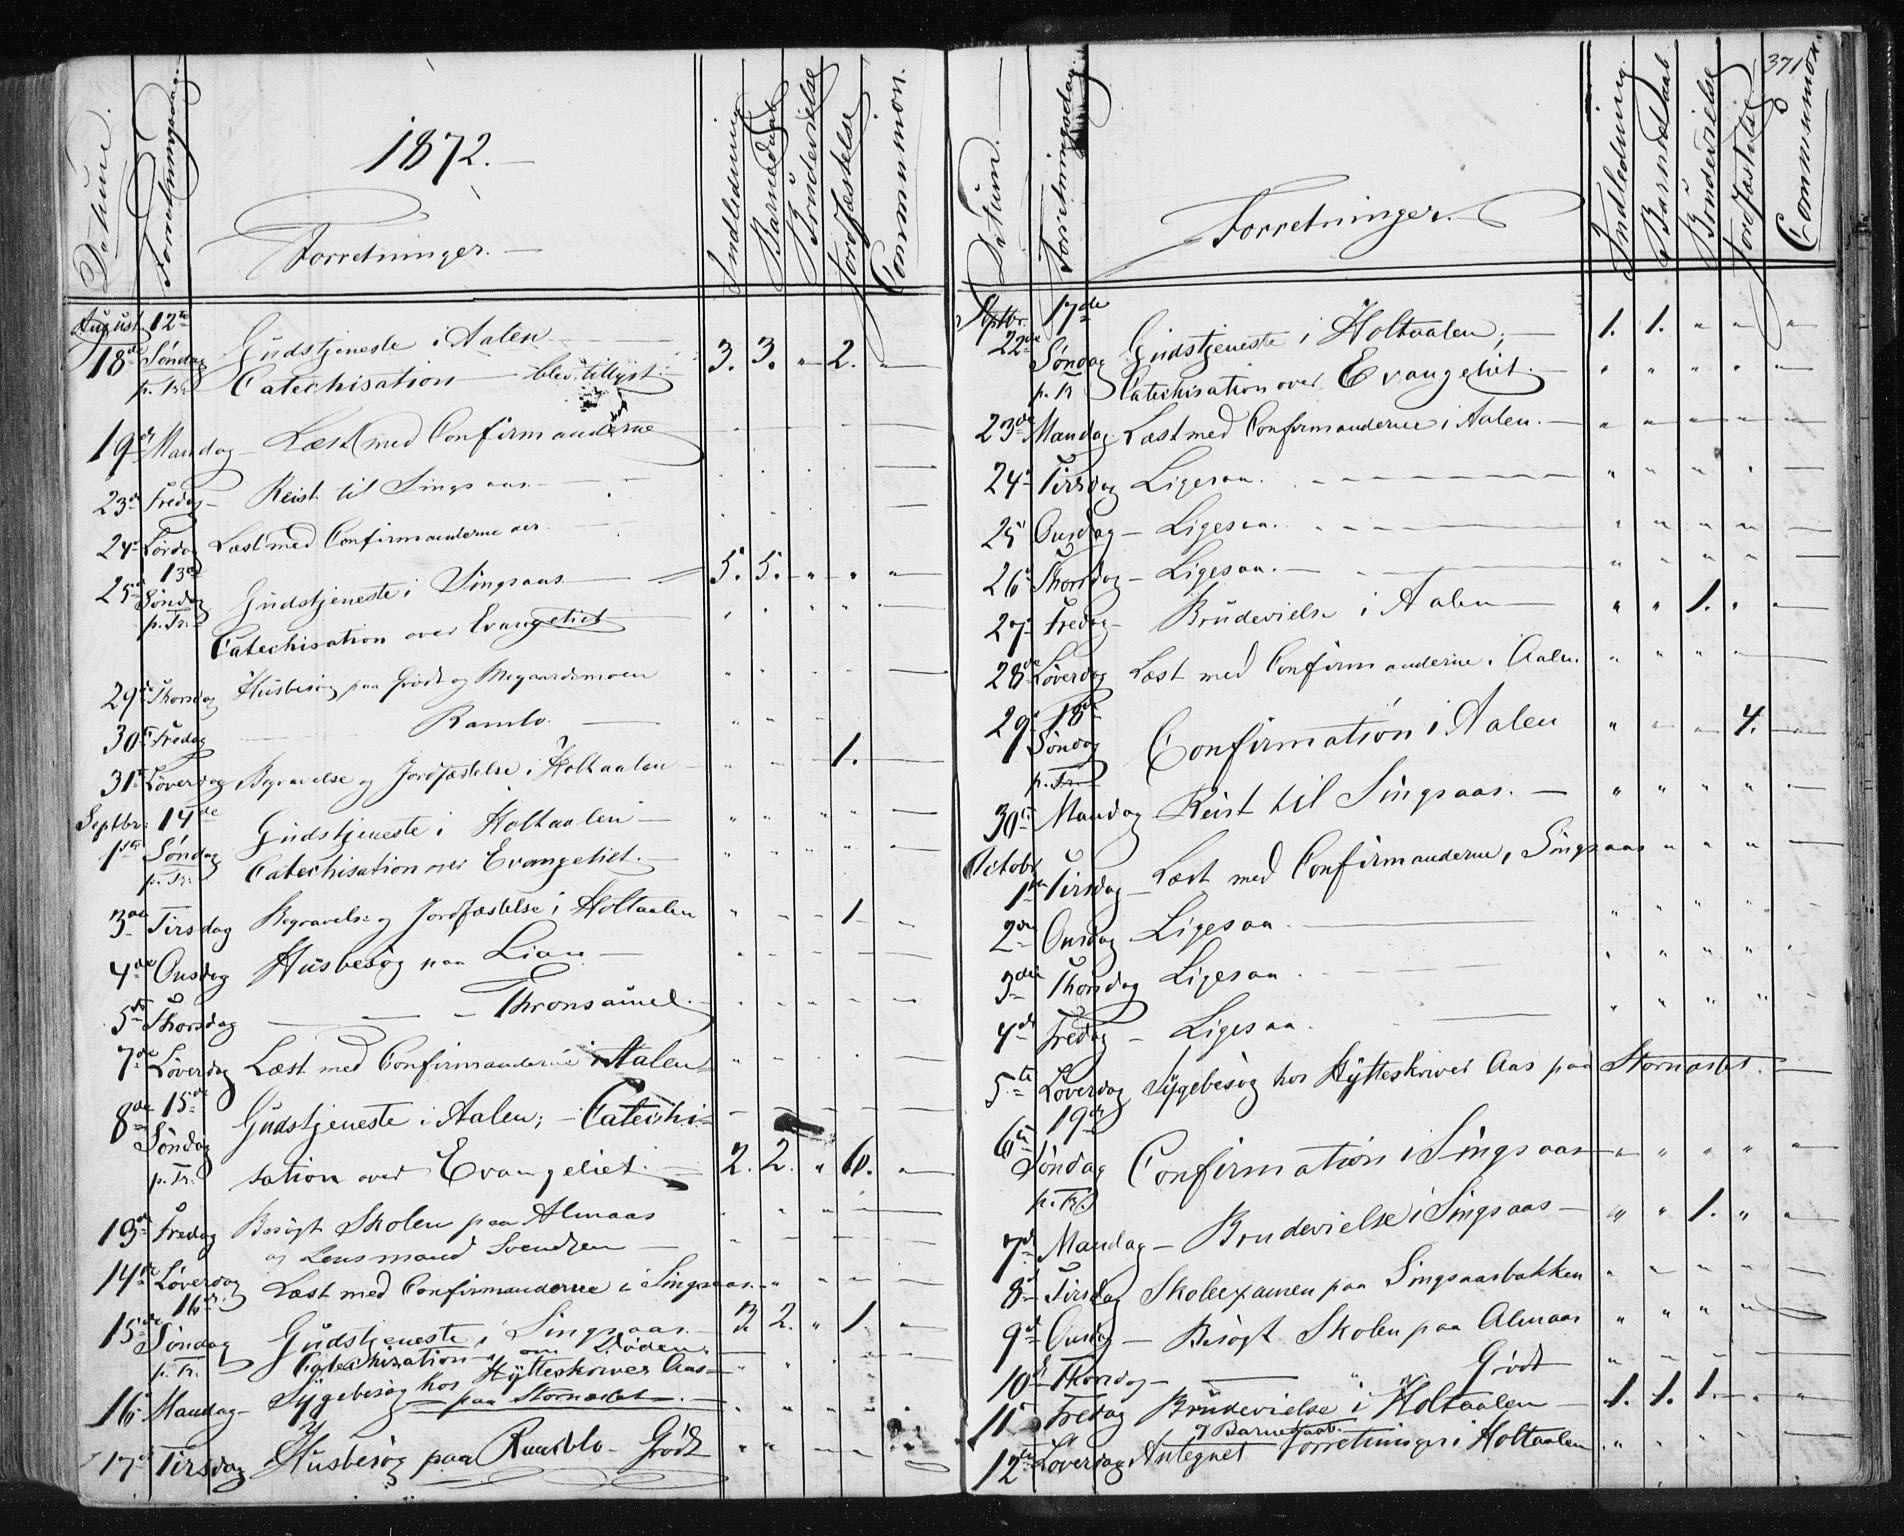 1872.
Datum. Forretningsdag. Forretninger. Indledning Barnedaab Brudevielse Jordfæstelse Communion.
August 12te
18de Søndag Gudstjeneste i Aalen 3. 3. " 2. "
p. Tr. Catechisation blev tillyst.
19de Mandag Læst med Confirmanderne
23de Fredag Reist til Singsaas
24de Lørdag Læst med Confirmanderne
13de
25de Søndag Gudstjeneste i Singsaas 5. 5. " " "
p. Tr. Catechisation over Evangeliet
29de Thorsdag Husbesøg paa Grødt og
30te Fredag Ramlo
31te Løverdag Begravelse og Jordfæstelse i Holtaalen 1.
Septbr. 14de
1ste Søndag Gudstjeneste i Holtaalen
p. Tr. Catechisation over Evangeliet.
3die Tirsdag Begravelse og Jordfæstelse i Holtaalen 1
4de Onsdag Husbesøg paa Lian
5te Thorsdag
7de Løverdag Læst med Confirmanderne i Aalen
15de
8de Søndag Gudstjeneste i Aalen; Catechi-
p. Tr. sation over Evangeliet. 2. 2. " 6. "
13de Fredag Besøgt Skolen paa Almaas
og Lensmand Svendsen
14de Løverdag Læst med Confirmanderne i Singsaas
16de
15de Søndag Gudstjeneste i Singsaas 2 2. " 1. "
p. Tr. Catechisation om Døden.
16de Mandag Sygebesøg hos Hytteskriver Aas
paa Stornæstet.
17de Tirsdag Husbesøg paa Grødt
371
Datum. Forretningsdag. Forretninger. Indledning Barnedaab Brudevielse Jordfæstelse Communion.
Septbr. 17de
22de Søndag Gudstjeneste i Holtaalen; 1. 1. " " "
p. Tr. Catechisation over Evangeliet.
23de Mandag Læst med Confirmanderne i Aalen.
24de Tirsdag Ligesaa.
25 Onsdag Ligesaa.
26de Thorsdag Ligesaa.
27 Fredag Brudevielse i Aalen " " 1. " "
28de Løverdag Læst med Confirmanderne i Aalen.
29de 18de
Søndag Confirmation i Aalen " " " 4. "
p. Tr.
30te Mandag Reist til Singsaas.
Octobr
1ste Tirsdag Læst med Confirmanderne i Singsaas
2den Onsdag Ligesaa
3die Thorsdag Ligesaa
4de Fredag Ligesaa
5te Løverdag Sygebesøg hos Hytteskriver Aas paa Stornæstet.
19de
6te Søndag Confirmation i Singsaas
p. Tr.
7de Mandag Brudevielse i Singsaas " " 1. " "
8de Tirsdag Skoleexamen paa Singsaasbakken
9de Onsdag Besøgt Skolen paa Almaas
10de Thorsdag Grødt
11te Fredag Brudevielse i Holtaalen 1. 1. 1. " "
og Barnedaab.
12te Løverdag Antegnet Forretninger i Holtaalen